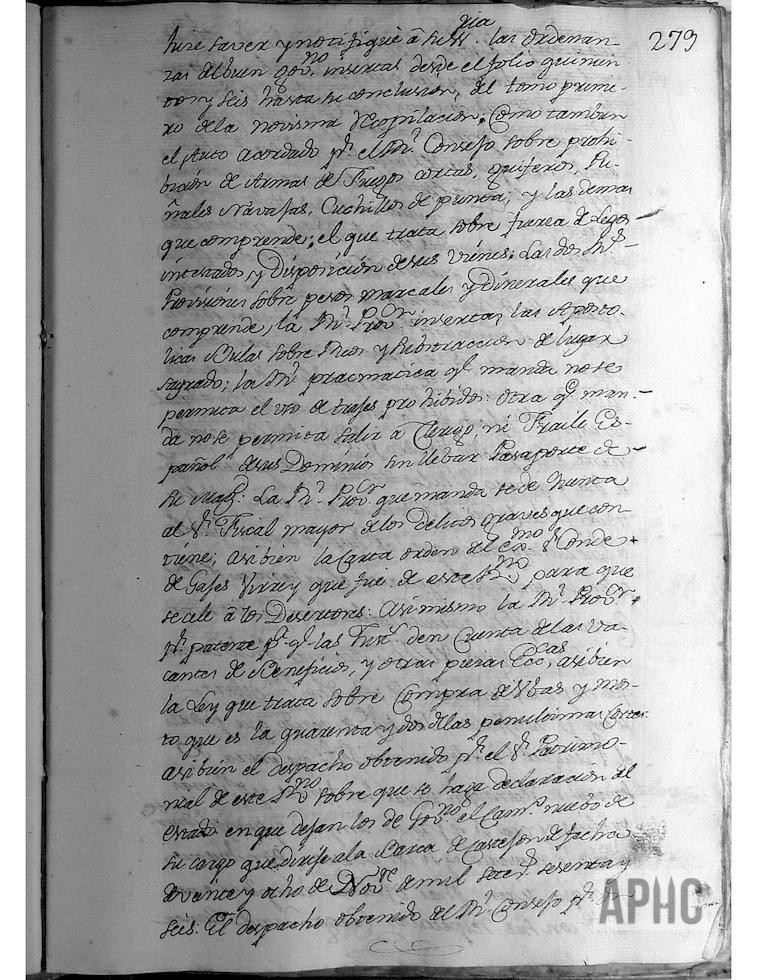 279
hize saver y notifiqué â su Sria. las Ordenan-
zas del buen gov.no insertas desde el folio quinien
tos y seis hasta su conclusion, del tomo prime-
ro de la novisima Recopilacion; Como tambien
el Auto acordado pr. el Rl. Consejo sobre prohi-
bicion de Armas de Fuego cortas, Pu-
ñales Navajas, Cuchillos de punta, y las demas
que comprende; el que trata sobre fuerza de Legos
intestados, y disposicion de sus vienes: Las dos Rs.
Provisiones sobre pesos marcales y dinerales que
comprende, la Rl. Provon. insertas las Aposto-
licas Bulas sobre Reos y subtraccion de lugar
sagrado; la Rl. pracmatica qe. manda no se
permita el vso de trajes prohibidos: otra qe. man-
da no se permita salir â Clerigo, ni Fraile Es-
pañol desus Dominios sin llebar Pasaporte de
su Magd.: La Rl. Provon. que manda se de cuenta
al Sr. Fiscal mayor de los delitos graves que con-
tiene; asi bien la Carta orden del Exmo. Sr. Conde
de Gajes Virrey que fue de este Rno. para que
se cele â los Desertores: Asimismo la Rl. Provon.
pr. patente pa. qe. las Justs. den Cuenta de las va-
cantes de Beneficios, y otras piezas Eccas. asibien
la Ley que trata sobre Compra de Vbas y Mos-
to que es la quarenta y dos de las penultimas Cortes
asibien el despacho obtenido pr. el Sr. Patrimo-
nial de este Rno. sobre que se haga declaracion del
estado en que dejan los de Govno. el Camo. nuebo de
su cargo que dirije a la Barca de Castejon de fecha
de veinte y ocho de Nove. de mil setects. sesenta y
seis: El despacho obtenido del Rl. Consejo pr.
APHC